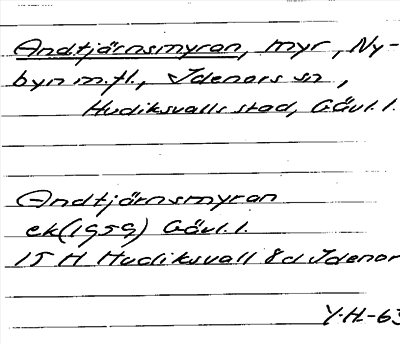 Andtjärnsmyran, myr, Ny-
byn m.fl., Idenors sn,
Hudiksvalls stad, Gävl.l.
Andtjärnsmyran
ek(1959) Gävl.l.
15 H Hudiksvall 8d Idenor
Y.H-63